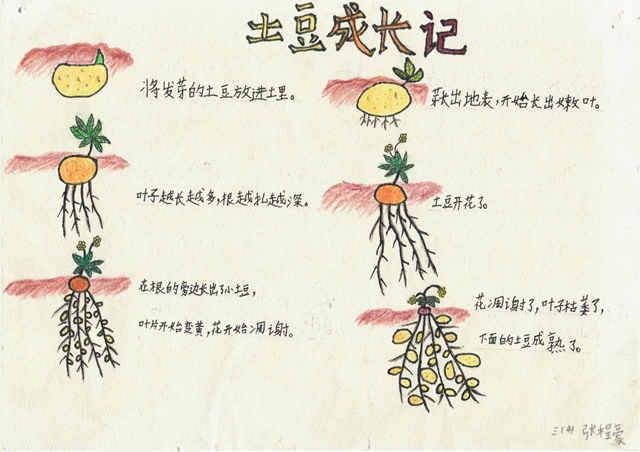 土豆成长记
将发芽的土豆放进土里。
钻出地表，开始长出嫩叶。
叶子越长越多，根越扎越深。
土豆开花了。
在根的旁边长出了小土豆，
叶片开始变黄，花开始凋谢。
花凋谢了，叶子枯萎了，
下面的土豆成熟了。
张程豪